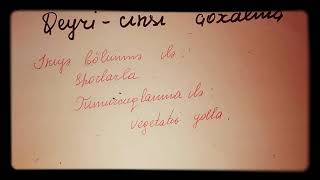 Qeyri-cinsi çoxalma
İkiyə bölünmə ilə:
Sporlarla
Tumurcuqlanma ilə:
Vegetativ yolla.